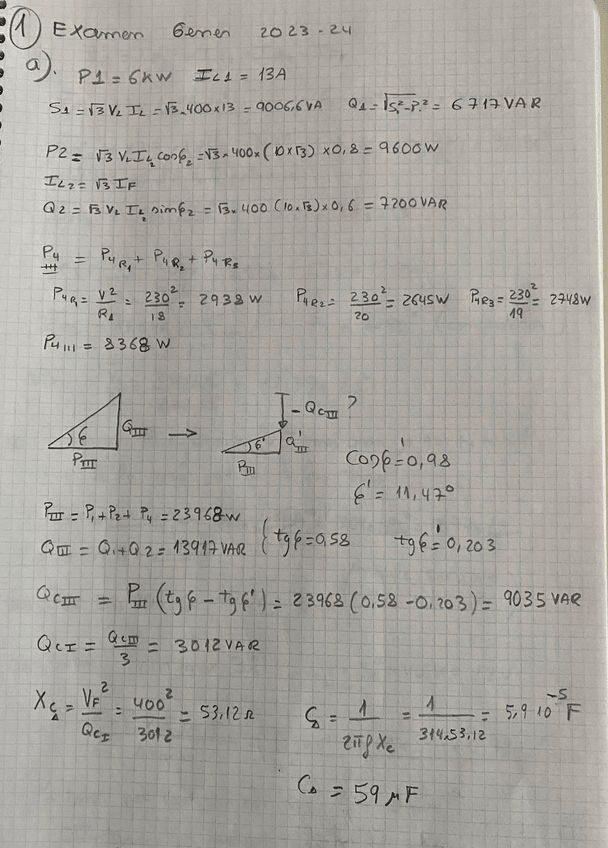 ① Examen Gener 2023-24
a). P1 = 6kW IL1 = 13A
S1 = √3 VL IL = √3·400×13 = 9006,6VA Q1 = √(S1²-P1²) = 6717VAR
P2 = √3 VL IL2 cosφ2 = √3·400×(10×√3)×0,8 = 9600W
IL2 = √3 IF
Q2 = √3 VL IL2 sinφ2 = √3·400(10·√3)×0,6 = 7200VAR
P4 = P4R1 + P4R2 + P4R3
P4R1 = V²/R1 = 230²/18 = 2938W P4R2 = 230²/20 = 2645W P4R3 = 230²/19 = 2748W
P4III = 8368W
φ QIII PIII → φ' Q'III PIII -QCIII ?
cosφ' = 0,98
φ' = 11,47°
PIII = P1+P2+P4 = 23968W
QIII = Q1+Q2 = 13917VAR { tgφ = 0,58 tgφ' = 0,203
QCIII = PIII (tgφ - tgφ') = 23968(0,58-0,203) = 9035VAR
QCI = QCIII/3 = 3012VAR
XCΔ = VF²/QCI = 400²/3012 = 53,12Ω CΔ = 1/(2πf XC) = 1/(314·53,12) = 5,9 10⁻⁵ F
CΔ = 59 μF